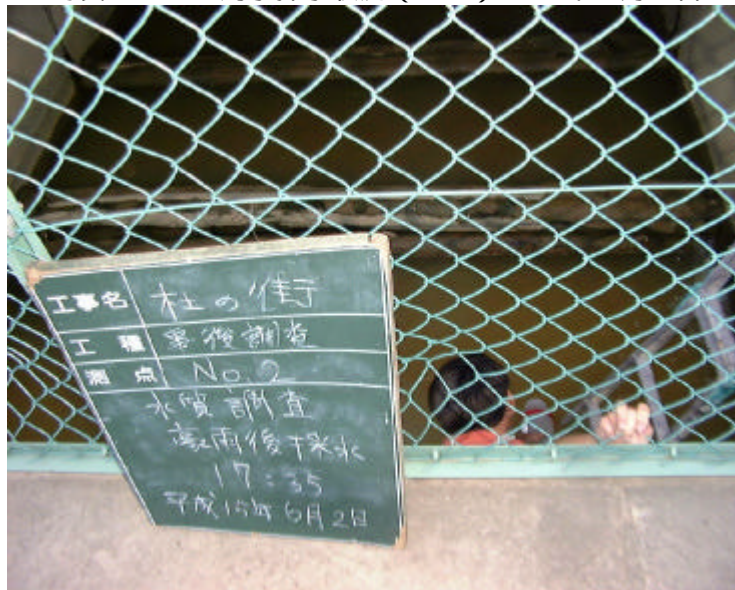 工事名 杜の街
工種 事後調査
測点 No.2
水質調査
豪雨後採水
17:35
平成15年6月2日